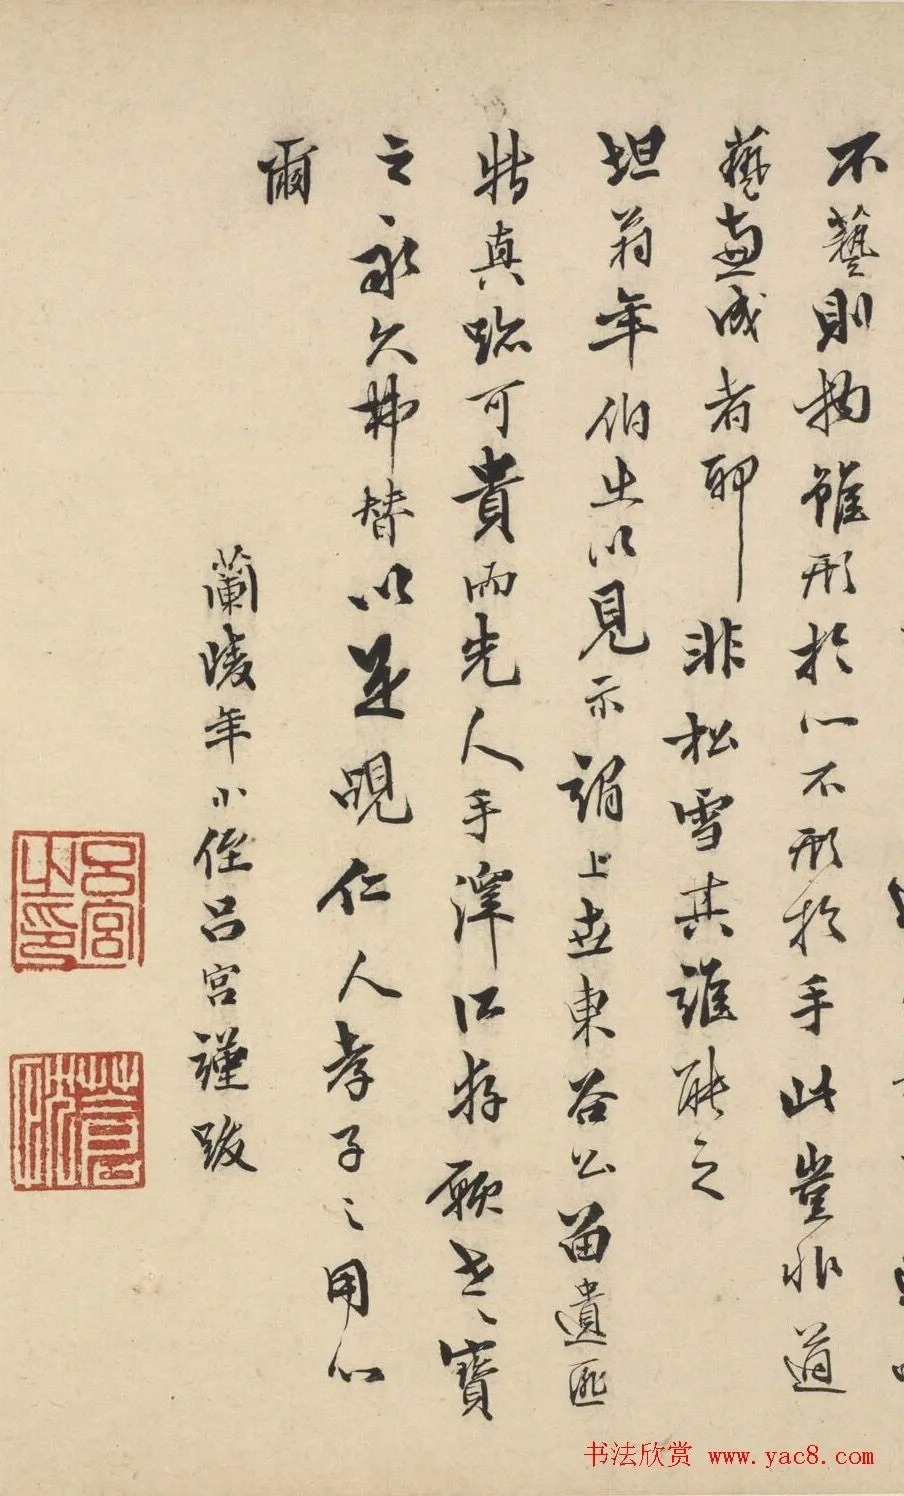 不藝則物雖形於心不形於手此豈非道
藝兼成者耶非松雪其誰能之
坦翁年伯出以見示謂上世東谷公留遺匪
特真跡可貴而先人手澤江存願世〻寶
之永久弗替以是覘仁人孝子之用心
爾
蘭陵年小侄呂宮謹跋
呂宮之印
书法欣赏 www.yac8.com